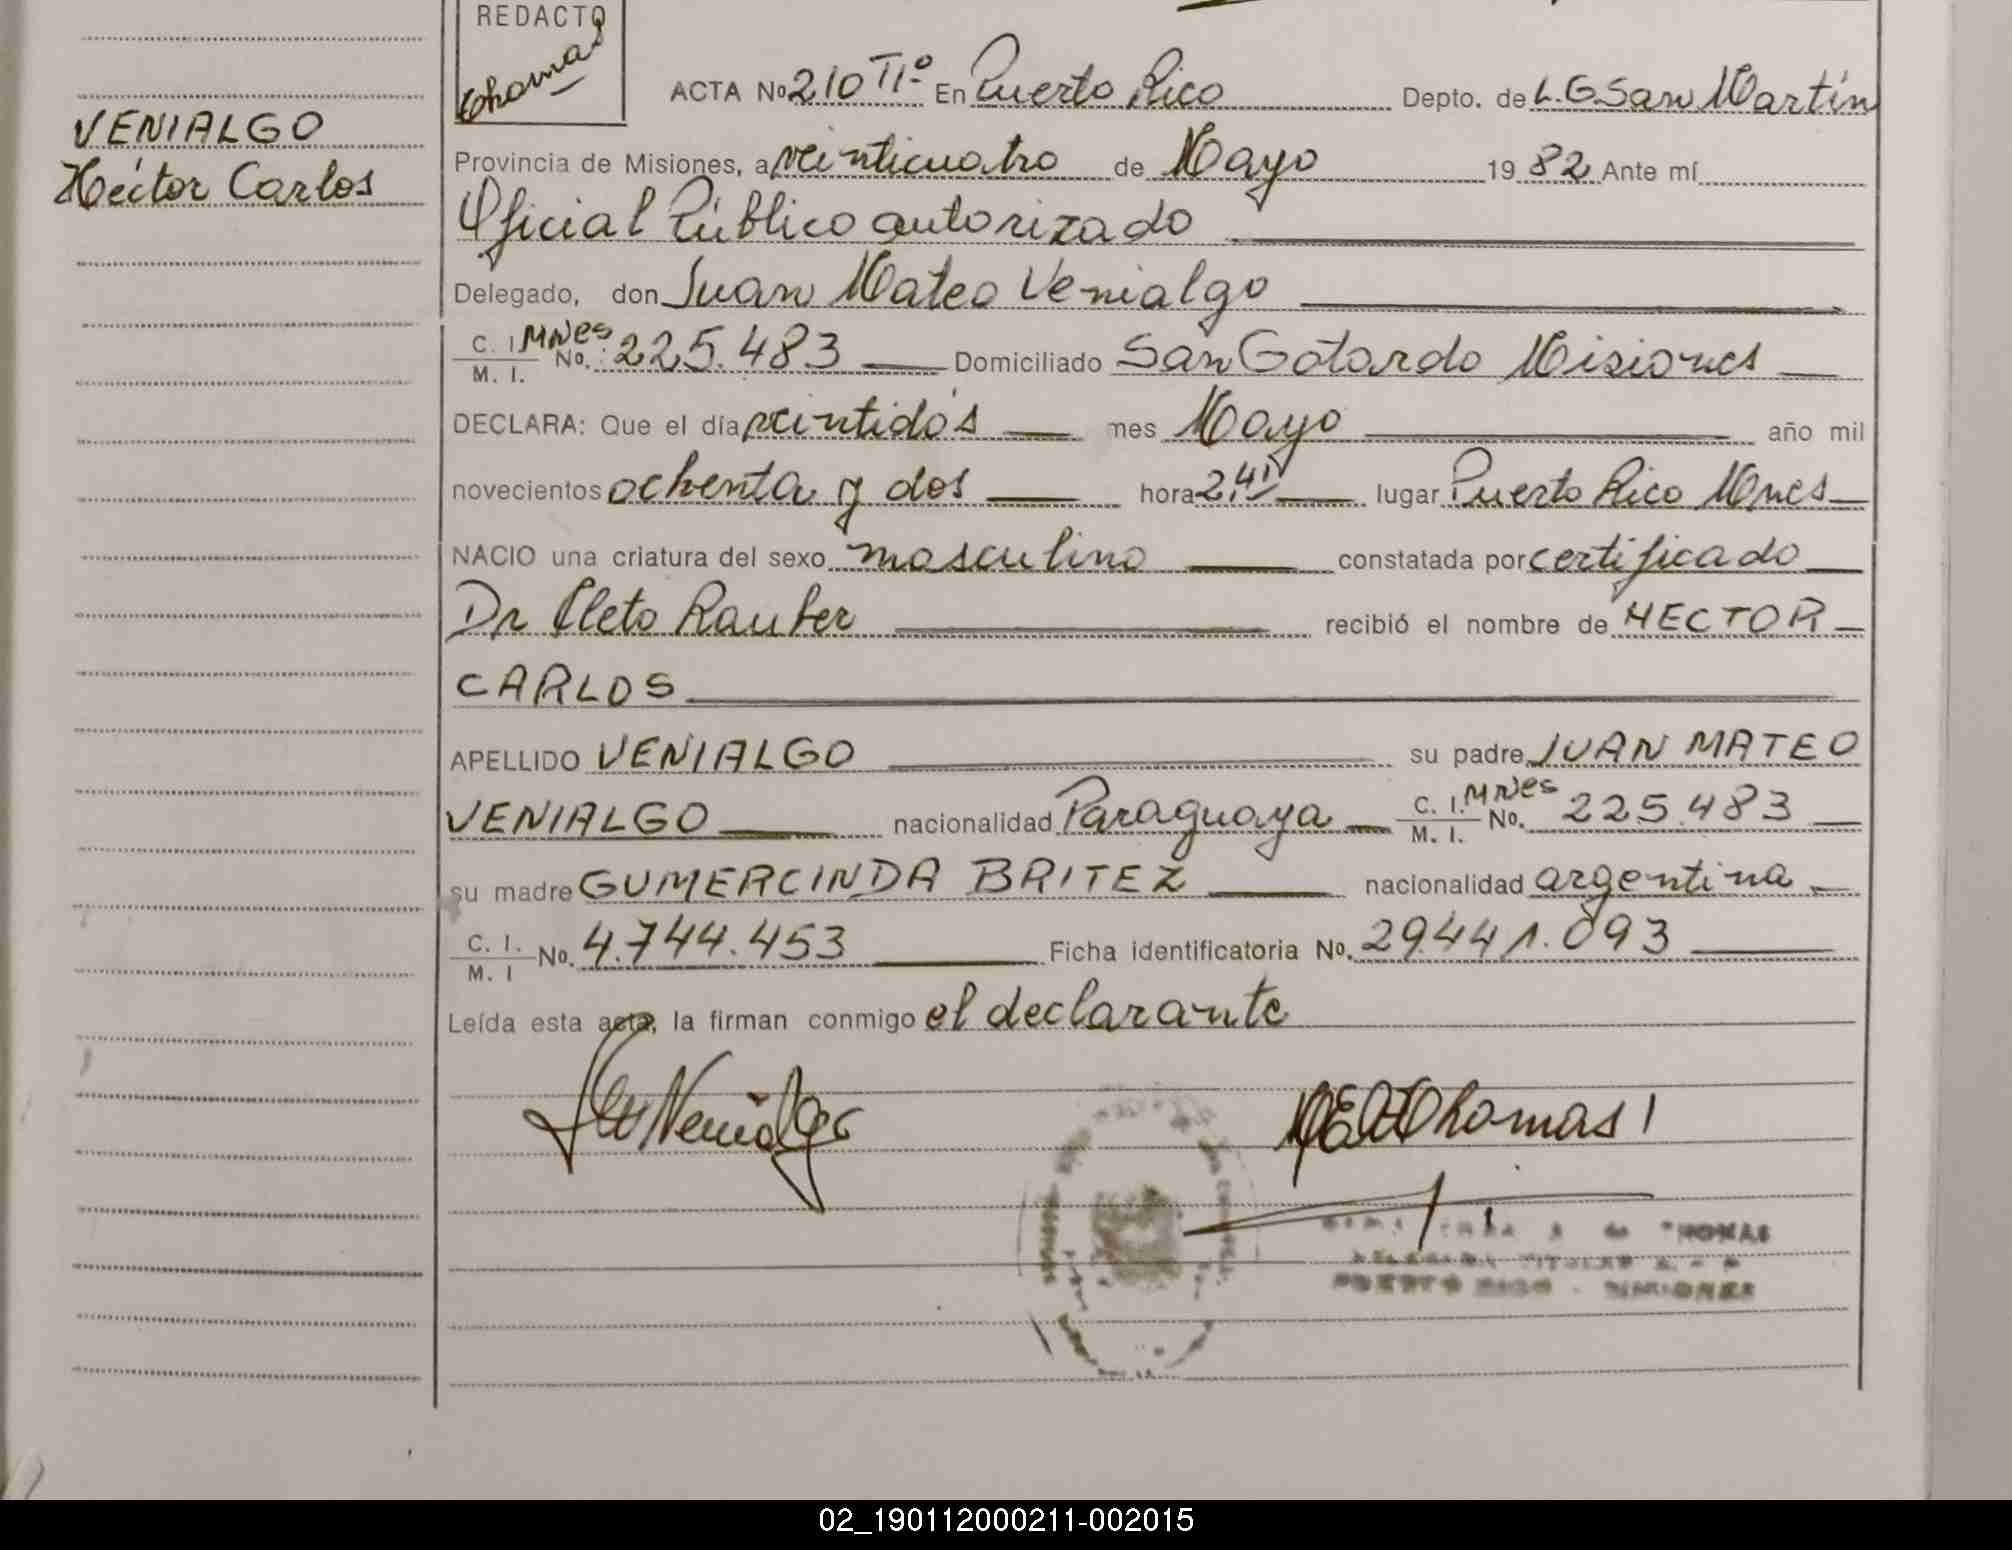 REDACTO
Thomas
VENIALGO
Héctor Carlos
ACTA No 210 TIº En Puerto Rico Depto. de L.G.San Martín
Provincia de Misiones, a veinticuatro de Mayo 19 82 Ante mí
Oficial Público autorizado
Delegado, don Juan Mateo Venialgo
C. I. M. I. Mnes No. 225.483 Domiciliado San Gotardo Misiones
DECLARA: Que el día veintidós mes Mayo año mil
novecientos ochenta y dos hora 2,41 lugar Puerto Rico Mnes
NACIO una criatura del sexo masculino constatada por certificado
Dr Cleto Rauber recibió el nombre de HECTOR
CARLOS
APELLIDO VENIALGO su padre JUAN MATEO
VENIALGO nacionalidad Paraguaya C. I. M. I. Mnes No. 225.483
su madre GUMERCINDA BRITEZ nacionalidad argentina
C. I. M. I No. 4.744.453 Ficha identificatoria No. 29.441.093
Leída esta acta, la firman conmigo el declarante
Venialgo
Thomas
de THOMAS
TITULAR
PUERTO RICO - MISIONES
02_190112000211-002015